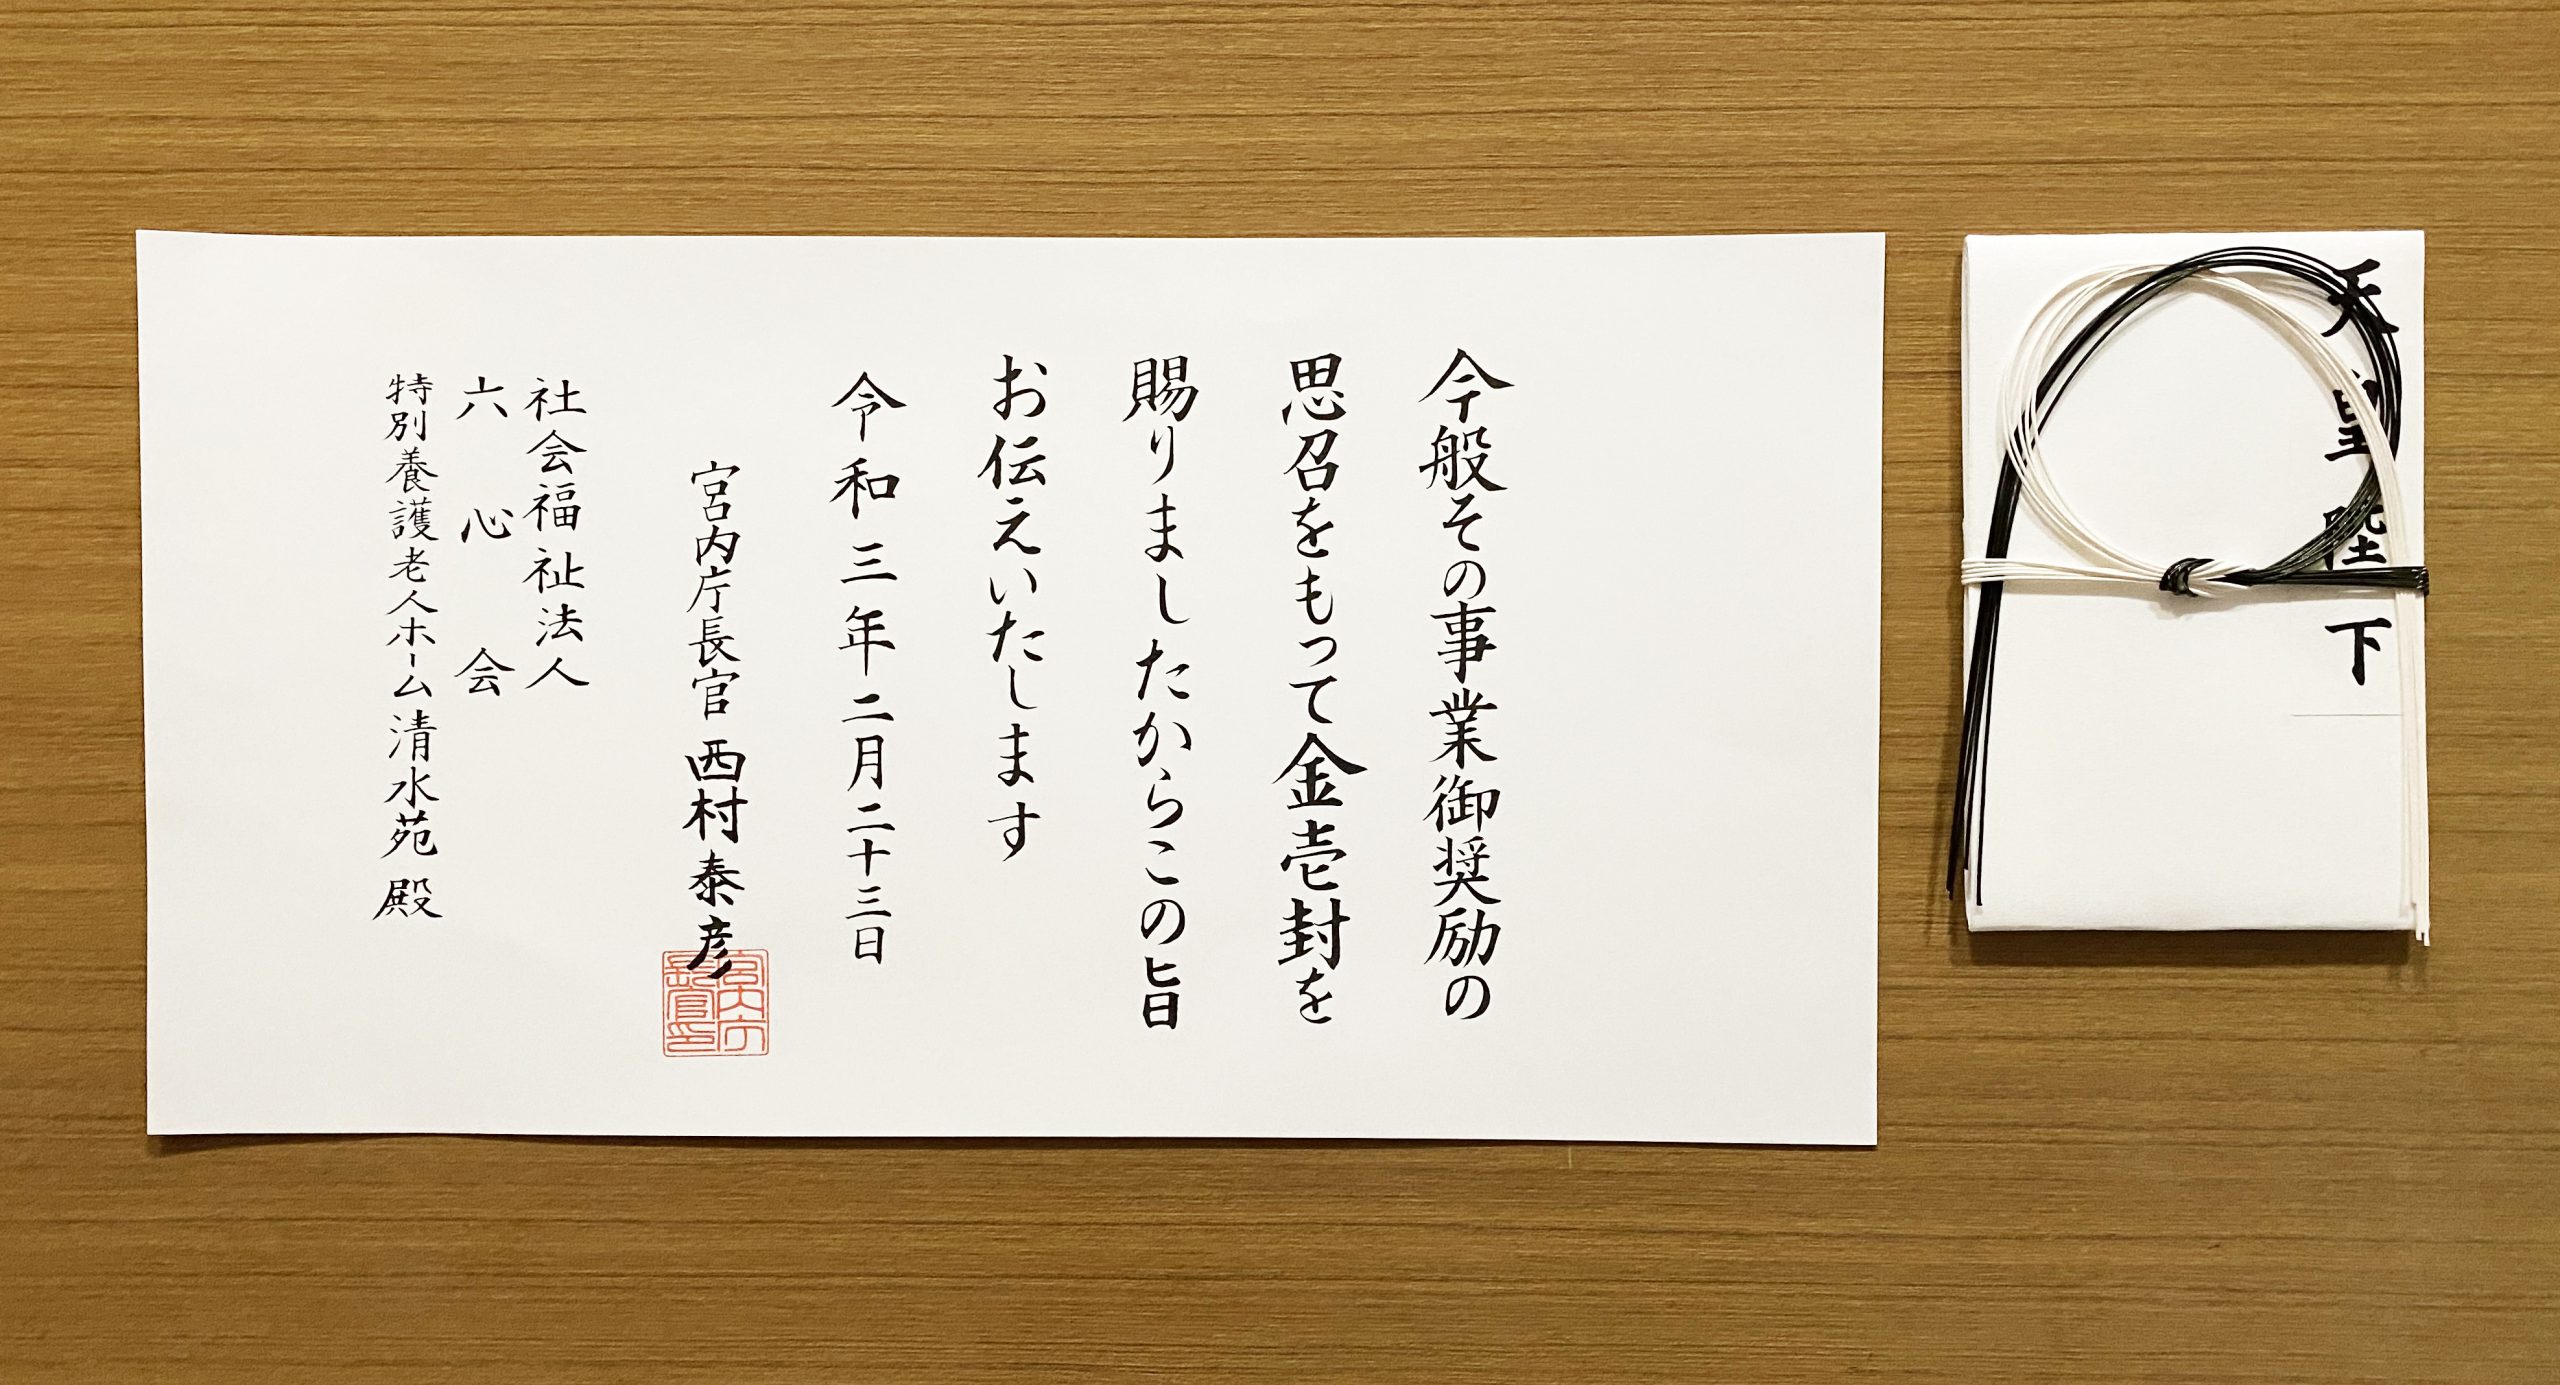 天皇陛下
今般その事業御奨励の
思召をもって金壱封を
賜りましたからこの旨
お伝えいたします
令和三年二月二十三日
宮内庁長官 西村泰彦
宮内庁
長官印
社会福祉法人
六心会
特別養護老人ホーム清水苑 殿